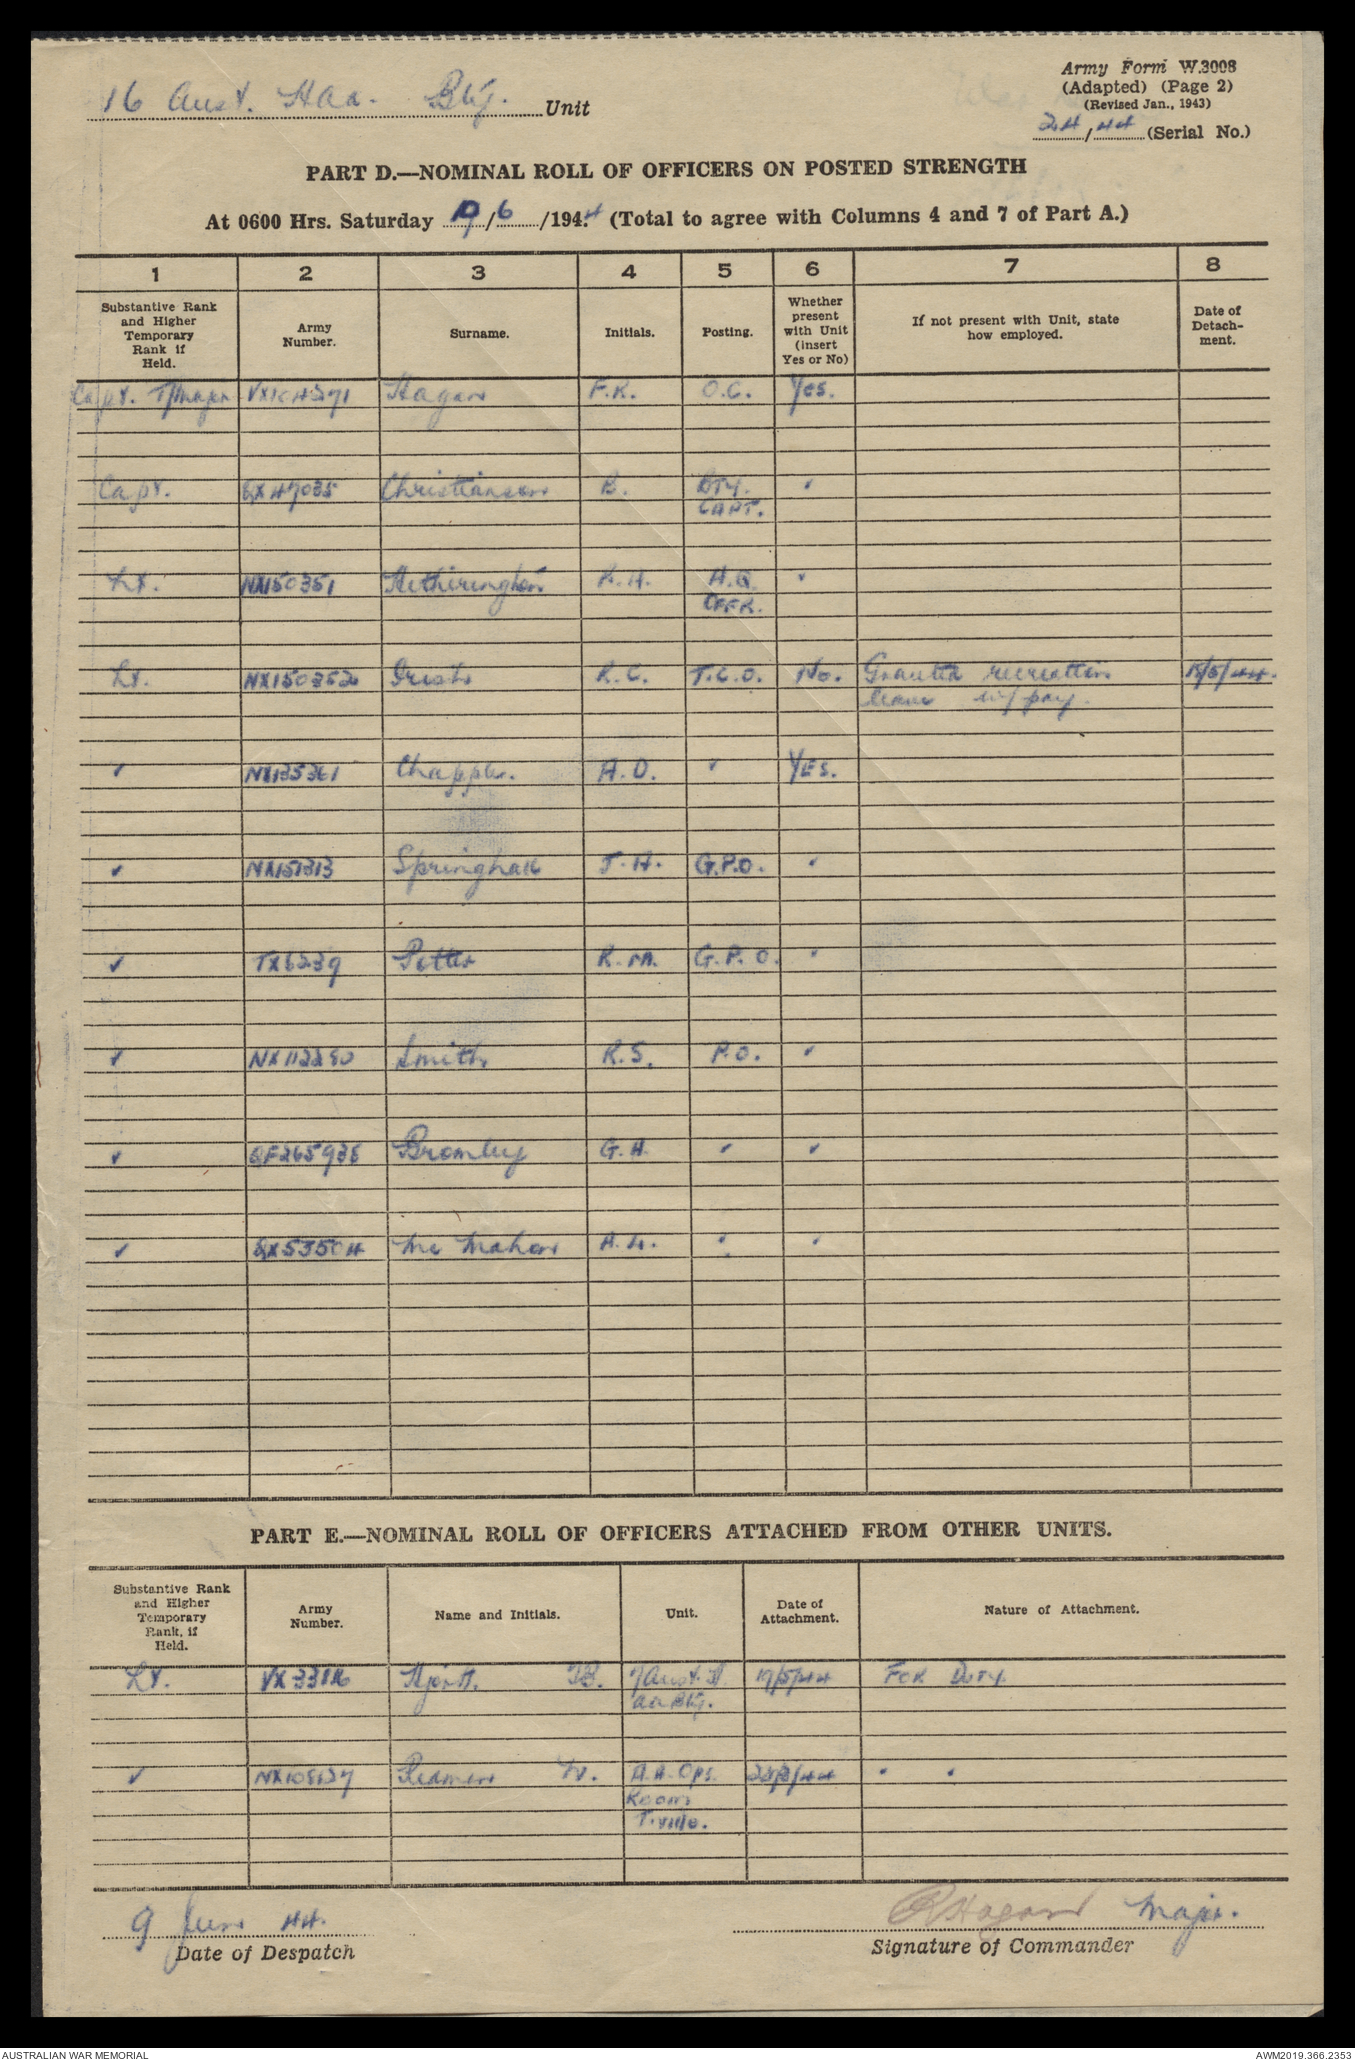 16 Aust. Haa. Bty. Unit
Army Form W.3008
(Adapted) (Page 2)
(Revised Jan., 1943)
24/44 (Serial No.)
PART D.—NOMINAL ROLL OF OFFICERS ON POSTED STRENGTH
At 0600 Hrs. Saturday /6/1944 (Total to agree with Columns 4 and 7 of Part A.)
1 2 3 4 5 6 7 8
Substantive Rank and Higher Temporary Rank if Held.
Army Number.
Surname.
Initials.
Posting.
Whether present with Unit (insert Yes or No)
If not present with Unit, state how employed.
Date of Detach- ment.
Capt. T/Major VX104271 Hagan F.K. O.C. Yes.
Capt. QX47035 Christiansen B. BTY.
CAPT.
✓
Lt. NX150351 Hetherington R.H. H.Q.
OFFR.
✓
Lt. NX150352 Irish R.C. T.C.O. No. Granted recreation 15/5/44.
leave w/pay.
✓ NX135361 Chapple. A.O. ✓ YES.
✓ NX151313 Springhall J.H. G.P.O. ✓
✓ TX6239 Potter R.M. G.P.O. ✓
✓ NX112250 Smith R.S. P.O. ✓
✓ QF265935 Bromley G.H. ✓ ✓
✓ QX53504 McMahon A.L. ✓ ✓
PART E.—NOMINAL ROLL OF OFFICERS ATTACHED FROM OTHER UNITS.
Substantive Rank and Higher Temporary Rank, if Held.
Army Number.
Name and Initials.
Unit.
Date of Attachment.
Nature of Attachment.
Lt. Hjort. 7 Aust. H 17/5/44 FOR DUTY
AA Bty.
✓ NX108127 A.A. Ops. " "
Room
T.ville.
9 Jun 44.
Date of Despatch
Hagan Major.
Signature of Commander
AUSTRALIAN WAR MEMORIAL
AWM2019.366.2353